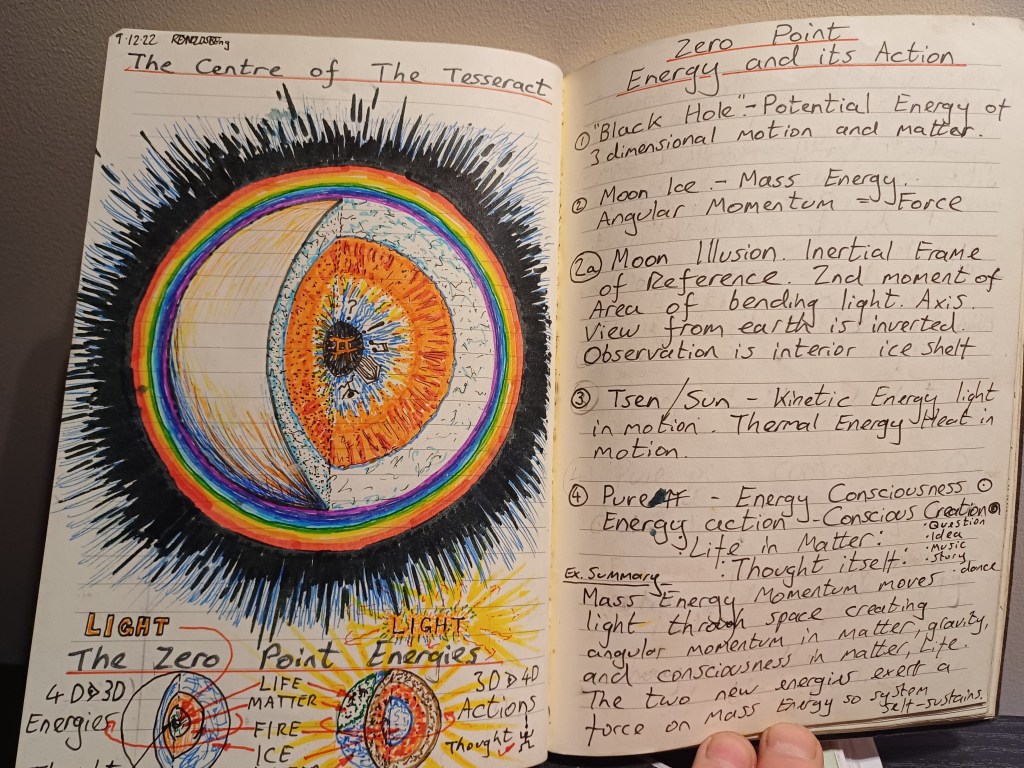 9.12.22
The Centre of The Tesseract
LIGHT
LIGHT
The Zero Point Energies
4D 3D
Energies
LIFE
MATTER
FIRE
ICE
3D 4D
Actions
Thought
Thought
Zero Point
Energy and its Action
① "Black Hole" - Potential Energy of
3 dimensional motion and matter.
② Moon Ice - Mass Energy.
Angular Momentum = Force
(2a) Moon Illusion. Inertial Frame
of Reference. 2nd moment of
Area of bending light. Axis
View from earth is inverted.
Observation is interior ice shelf
③ Tsen/Sun - Kinetic Energy light
in motion. Thermal Energy Heat in
motion.
④ Pure - Energy Consciousness
Energy action - Conscious Creation
: Life in Matter:
: Thought itself:
· Question
· Idea
· Music
· Story
· dance
Ex. Summary
Mass Energy Momentum moves
light through space creating
angular momentum in matter, gravity,
and consciousness in matter, life.
The two new energies exert a
force on Mass Energy so system
self-sustains.